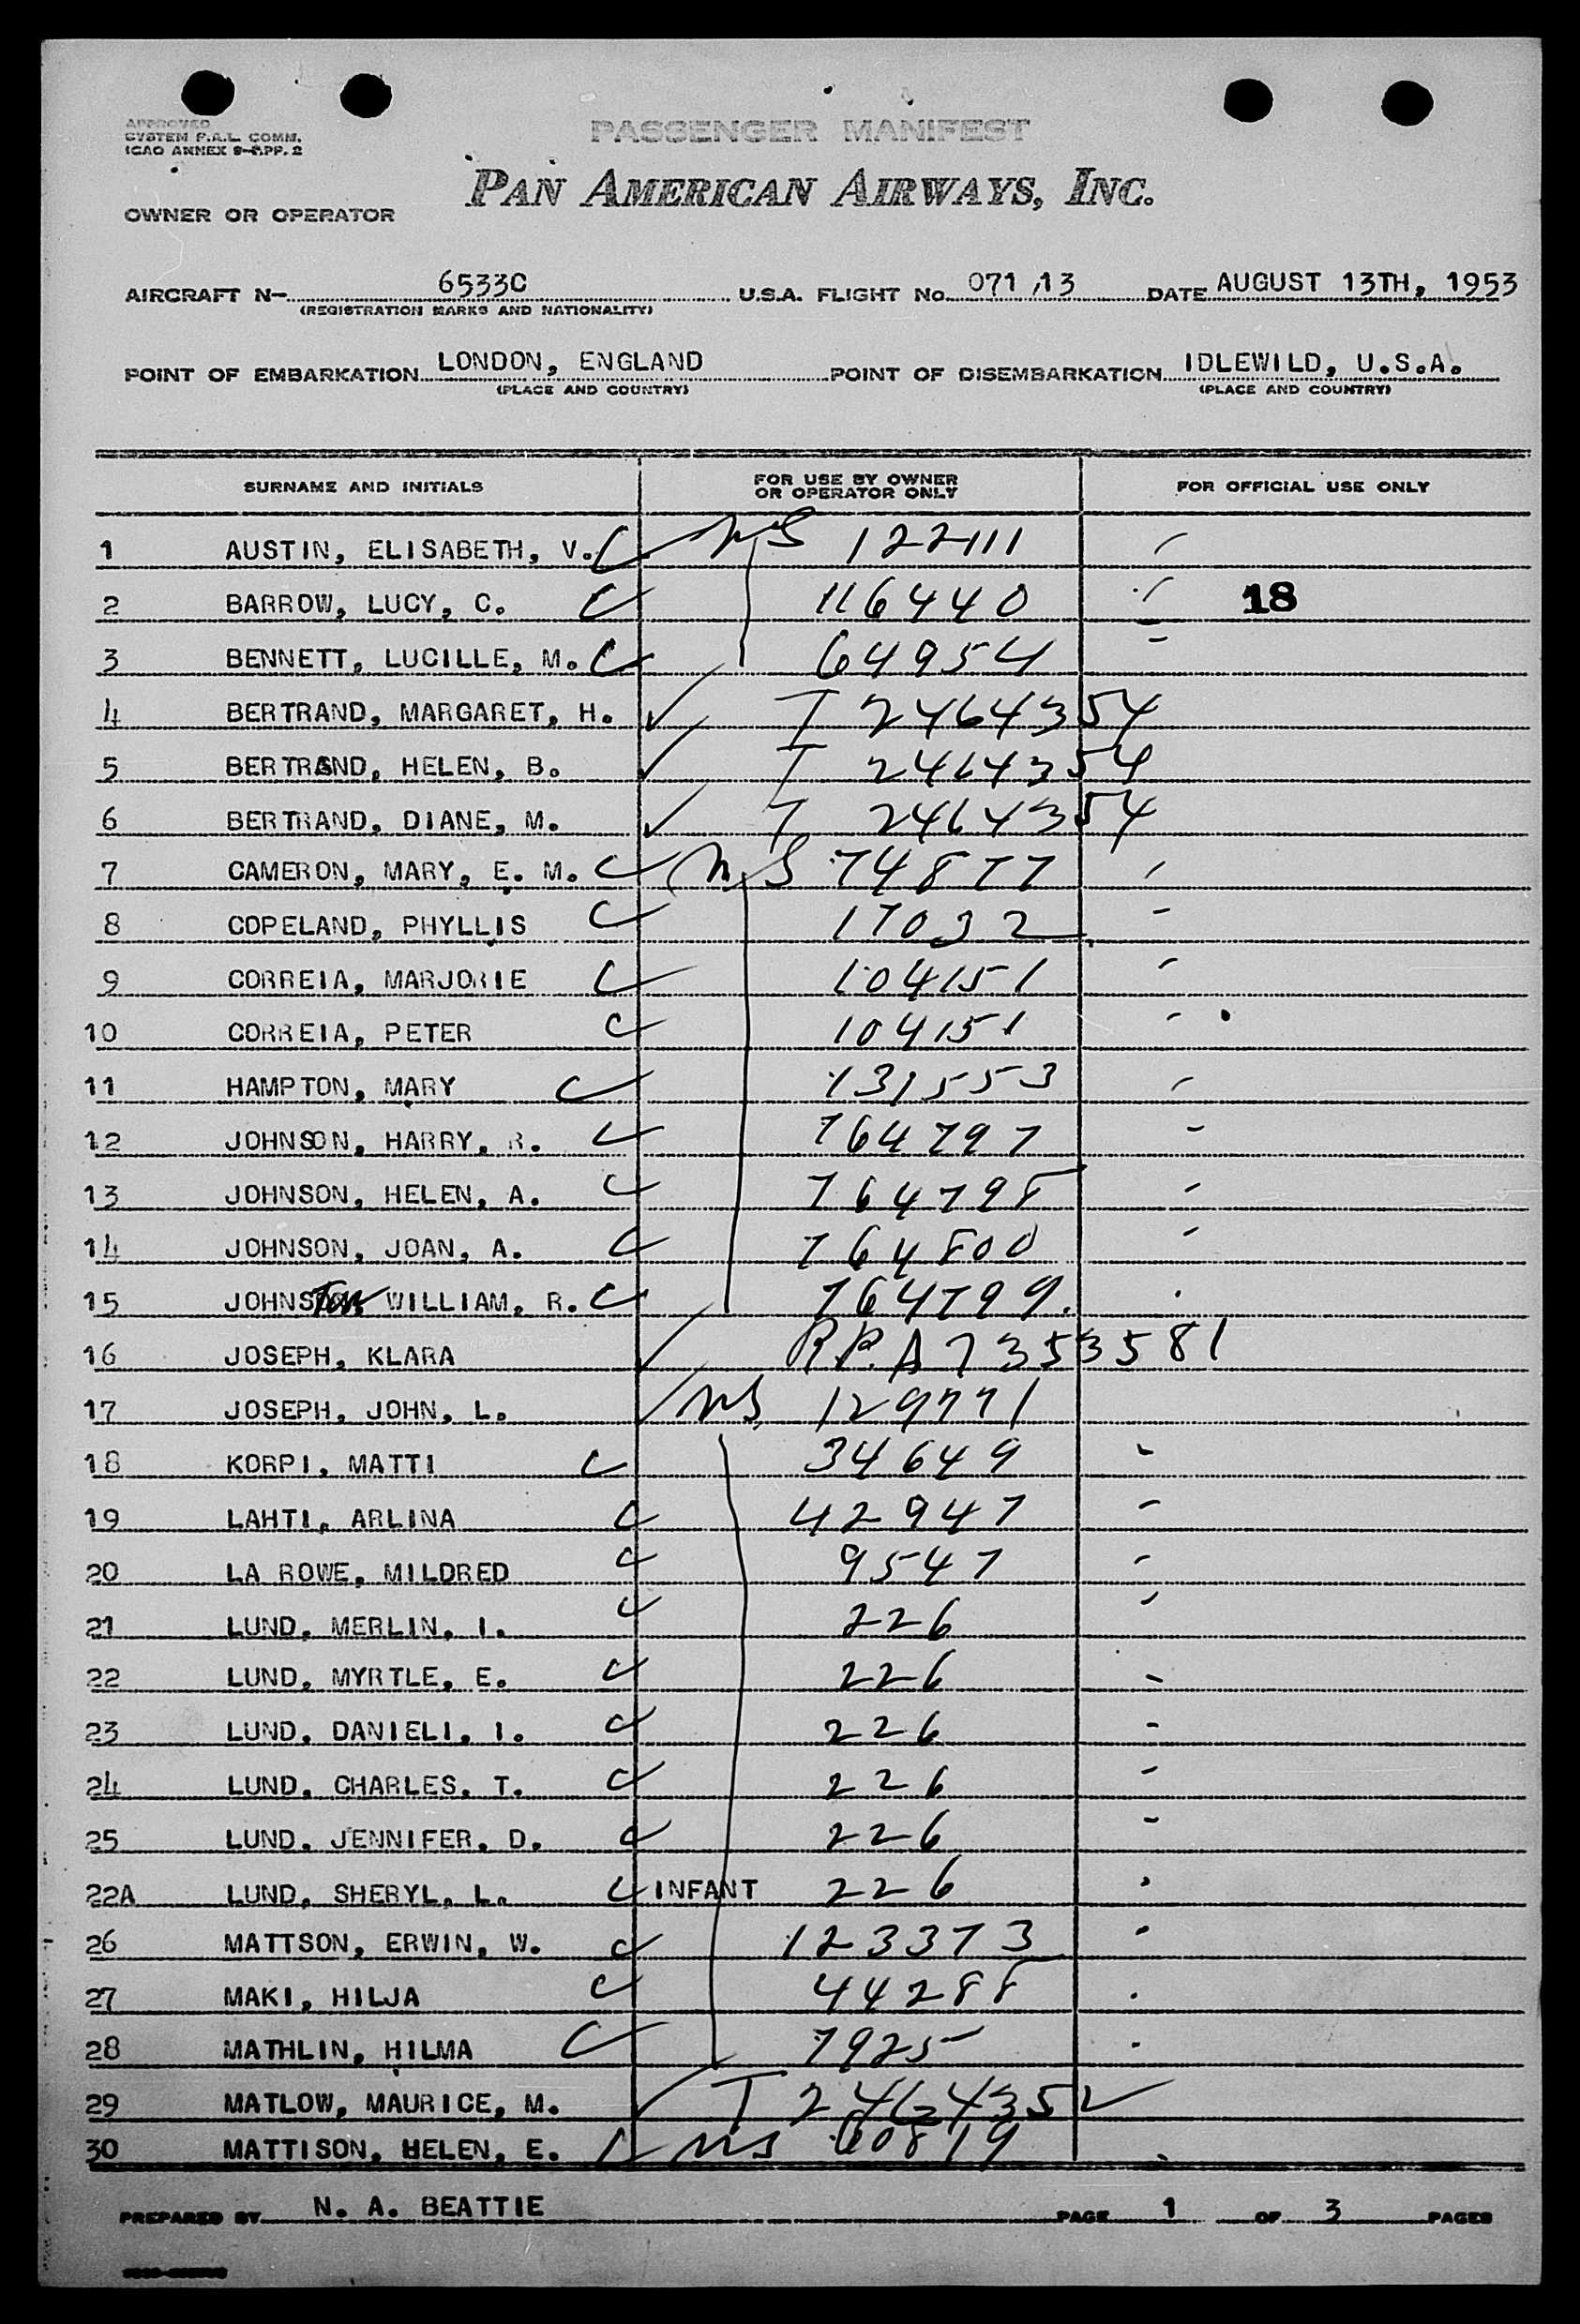 APPROVED
SYSTEM F.A.L. COMM.
ICAO ANNEX 9-APP. 2
PASSENGER MANIFEST
PAN AMERICAN AIRWAYS, INC.
OWNER OR OPERATOR
AIRCRAFT N- 6533C U.S.A. FLIGHT No. 071/13 DATE AUGUST 13TH, 1953
(REGISTRATION MARKS AND NATIONALITY)
POINT OF EMBARKATION LONDON, ENGLAND POINT OF DISEMBARKATION IDLEWILD, U.S.A.
(PLACE AND COUNTRY) (PLACE AND COUNTRY)
SURNAME AND INITIALS FOR USE BY OWNER OR OPERATOR ONLY FOR OFFICIAL USE ONLY
1 AUSTIN, ELISABETH, V. NS 122111
2 BARROW, LUCY, C. 116440 18
3 BENNETT, LUCILLE, M. 64954
4 BERTRAND, MARGARET, H. T 2464354
5 BERTRAND, HELEN, B. T 2464354
6 BERTRAND, DIANE, M. T 2464354
7 CAMERON, MARY, E. M. NS 74877
8 COPELAND, PHYLLIS 17032
9 CORREIA, MARJORIE 104151
10 CORREIA, PETER 104151
11 HAMPTON, MARY 131553
12 JOHNSON, HARRY, R. 764797
13 JOHNSON, HELEN, A. 764798
14 JOHNSON, JOAN, A. 764800
15 JOHNSTON, WILLIAM, R. 764799.
16 JOSEPH, KLARA R.P. A7353581
17 JOSEPH, JOHN, L. NS 129771
18 KORPI, MATTI 34649
19 LAHTI, ARLINA 42947
20 LA ROWE, MILDRED 9547
21 LUND, MERLIN, I. 226
22 LUND, MYRTLE, E. 226
23 LUND, DANIELI, I. 226
24 LUND, CHARLES, T. 226
25 LUND, JENNIFER, D. 226
22A LUND, SHERYL, L. INFANT 226
26 MATTSON, ERWIN, W. 123373
27 MAKI, HILJA 44288
28 MATHLIN, HILMA 7925
29 MATLOW, MAURICE, M. T 2464352
30 MATTISON, HELEN, E. NS 60819
PREPARED BY N. A. BEATTIE PAGE 1 OF 3 PAGES